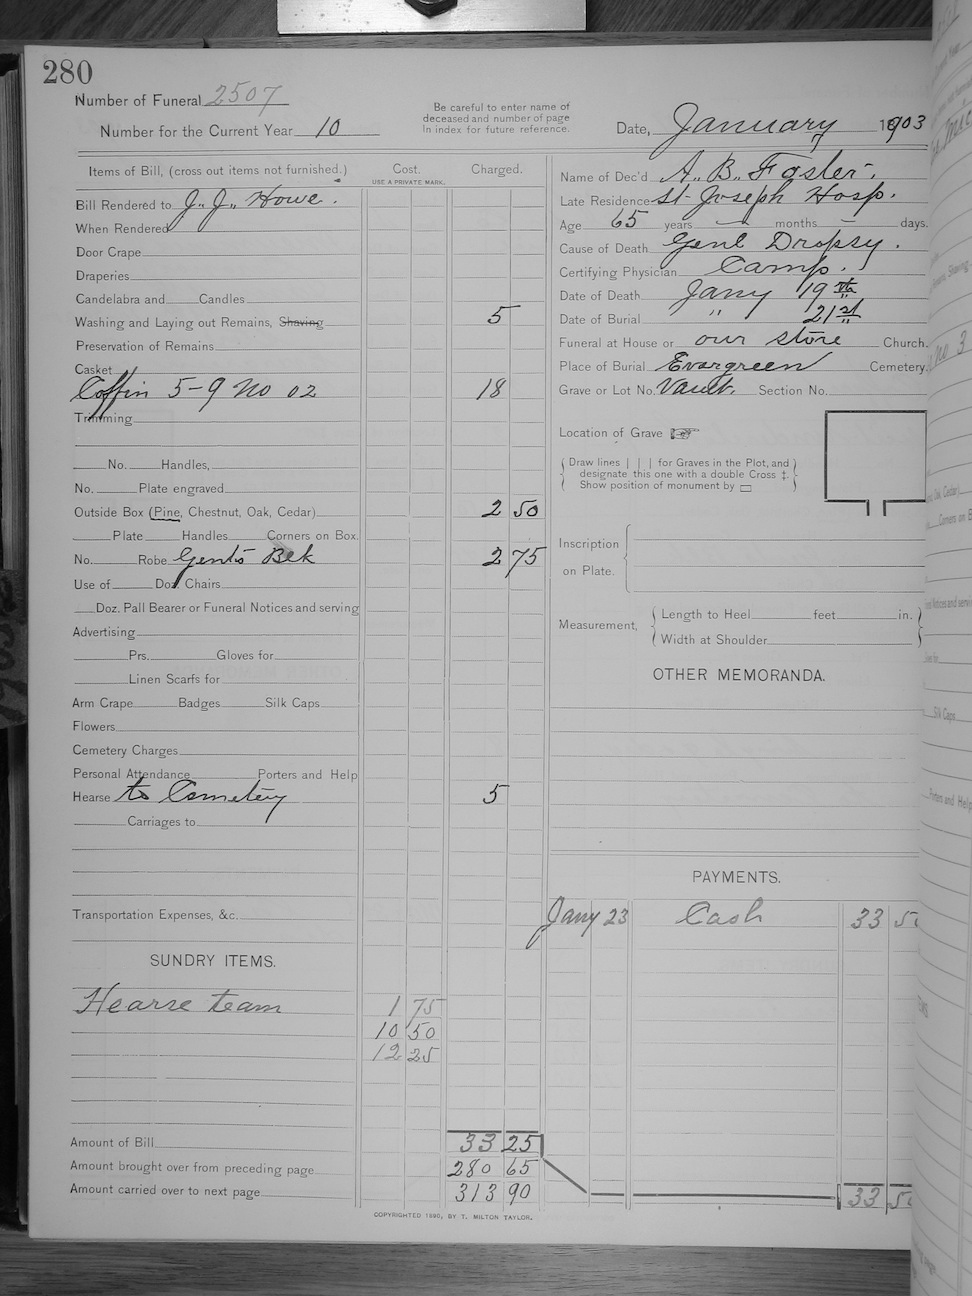 280
Number of Funeral 2507
Number for the Current Year 10
Be careful to enter name of
deceased and number of page
In index for future reference.
Date, January 1903
Items of Bill, (cross out items not furnished.)
Cost.
USE A PRIVATE MARK.
Charged.
Bill Rendered to J. J. Howe.
When Rendered
Door Crape
Draperies
Candelabra and Candles
Washing and Laying out Remains, Shaving 5
Preservation of Remains
Casket
Coffin 5-9 No 02 18
Trimming
No. Handles,
No. Plate engraved
Outside Box (Pine, Chestnut, Oak, Cedar) 2 50
Plate Handles Corners on Box.
No. Robe Gents Blk 2 75
Use of Doz. Chairs
Doz. Pall Bearer or Funeral Notices and serving
Advertising
Prs. Gloves for
Linen Scarfs for
Arm Crape Badges Silk Caps
Flowers
Cemetery Charges
Personal Attendance Porters and Help
Hearse to Cemetery 5
Carriages to
Transportation Expenses, &c.
SUNDRY ITEMS.
Hearse team 1 75
10 50
12 25
Amount of Bill 33 25
Amount brought over from preceding page 280 65
Amount carried over to next page 313 90
COPYRIGHTED 1890, BY T. MILTON TAYLOR.
Name of Dec'd A. B. Foster.
Late Residence St Joseph Hosp.
Age 65 years months days.
Cause of Death Genl Dropsy.
Certifying Physician Camp.
Date of Death Jany 19th
Date of Burial " 21st
Funeral at House or our store Church.
Place of Burial Evergreen Cemetery.
Grave or Lot No. Vault. Section No.
Location of Grave
(Draw lines | | | for Graves in the Plot, and
designate this one with a double Cross ‡.
Show position of monument by
Inscription
on Plate.
Measurement,
Length to Heel feet in.
Width at Shoulder
OTHER MEMORANDA.
PAYMENTS.
Jany 23 Cash 33 50
33 50